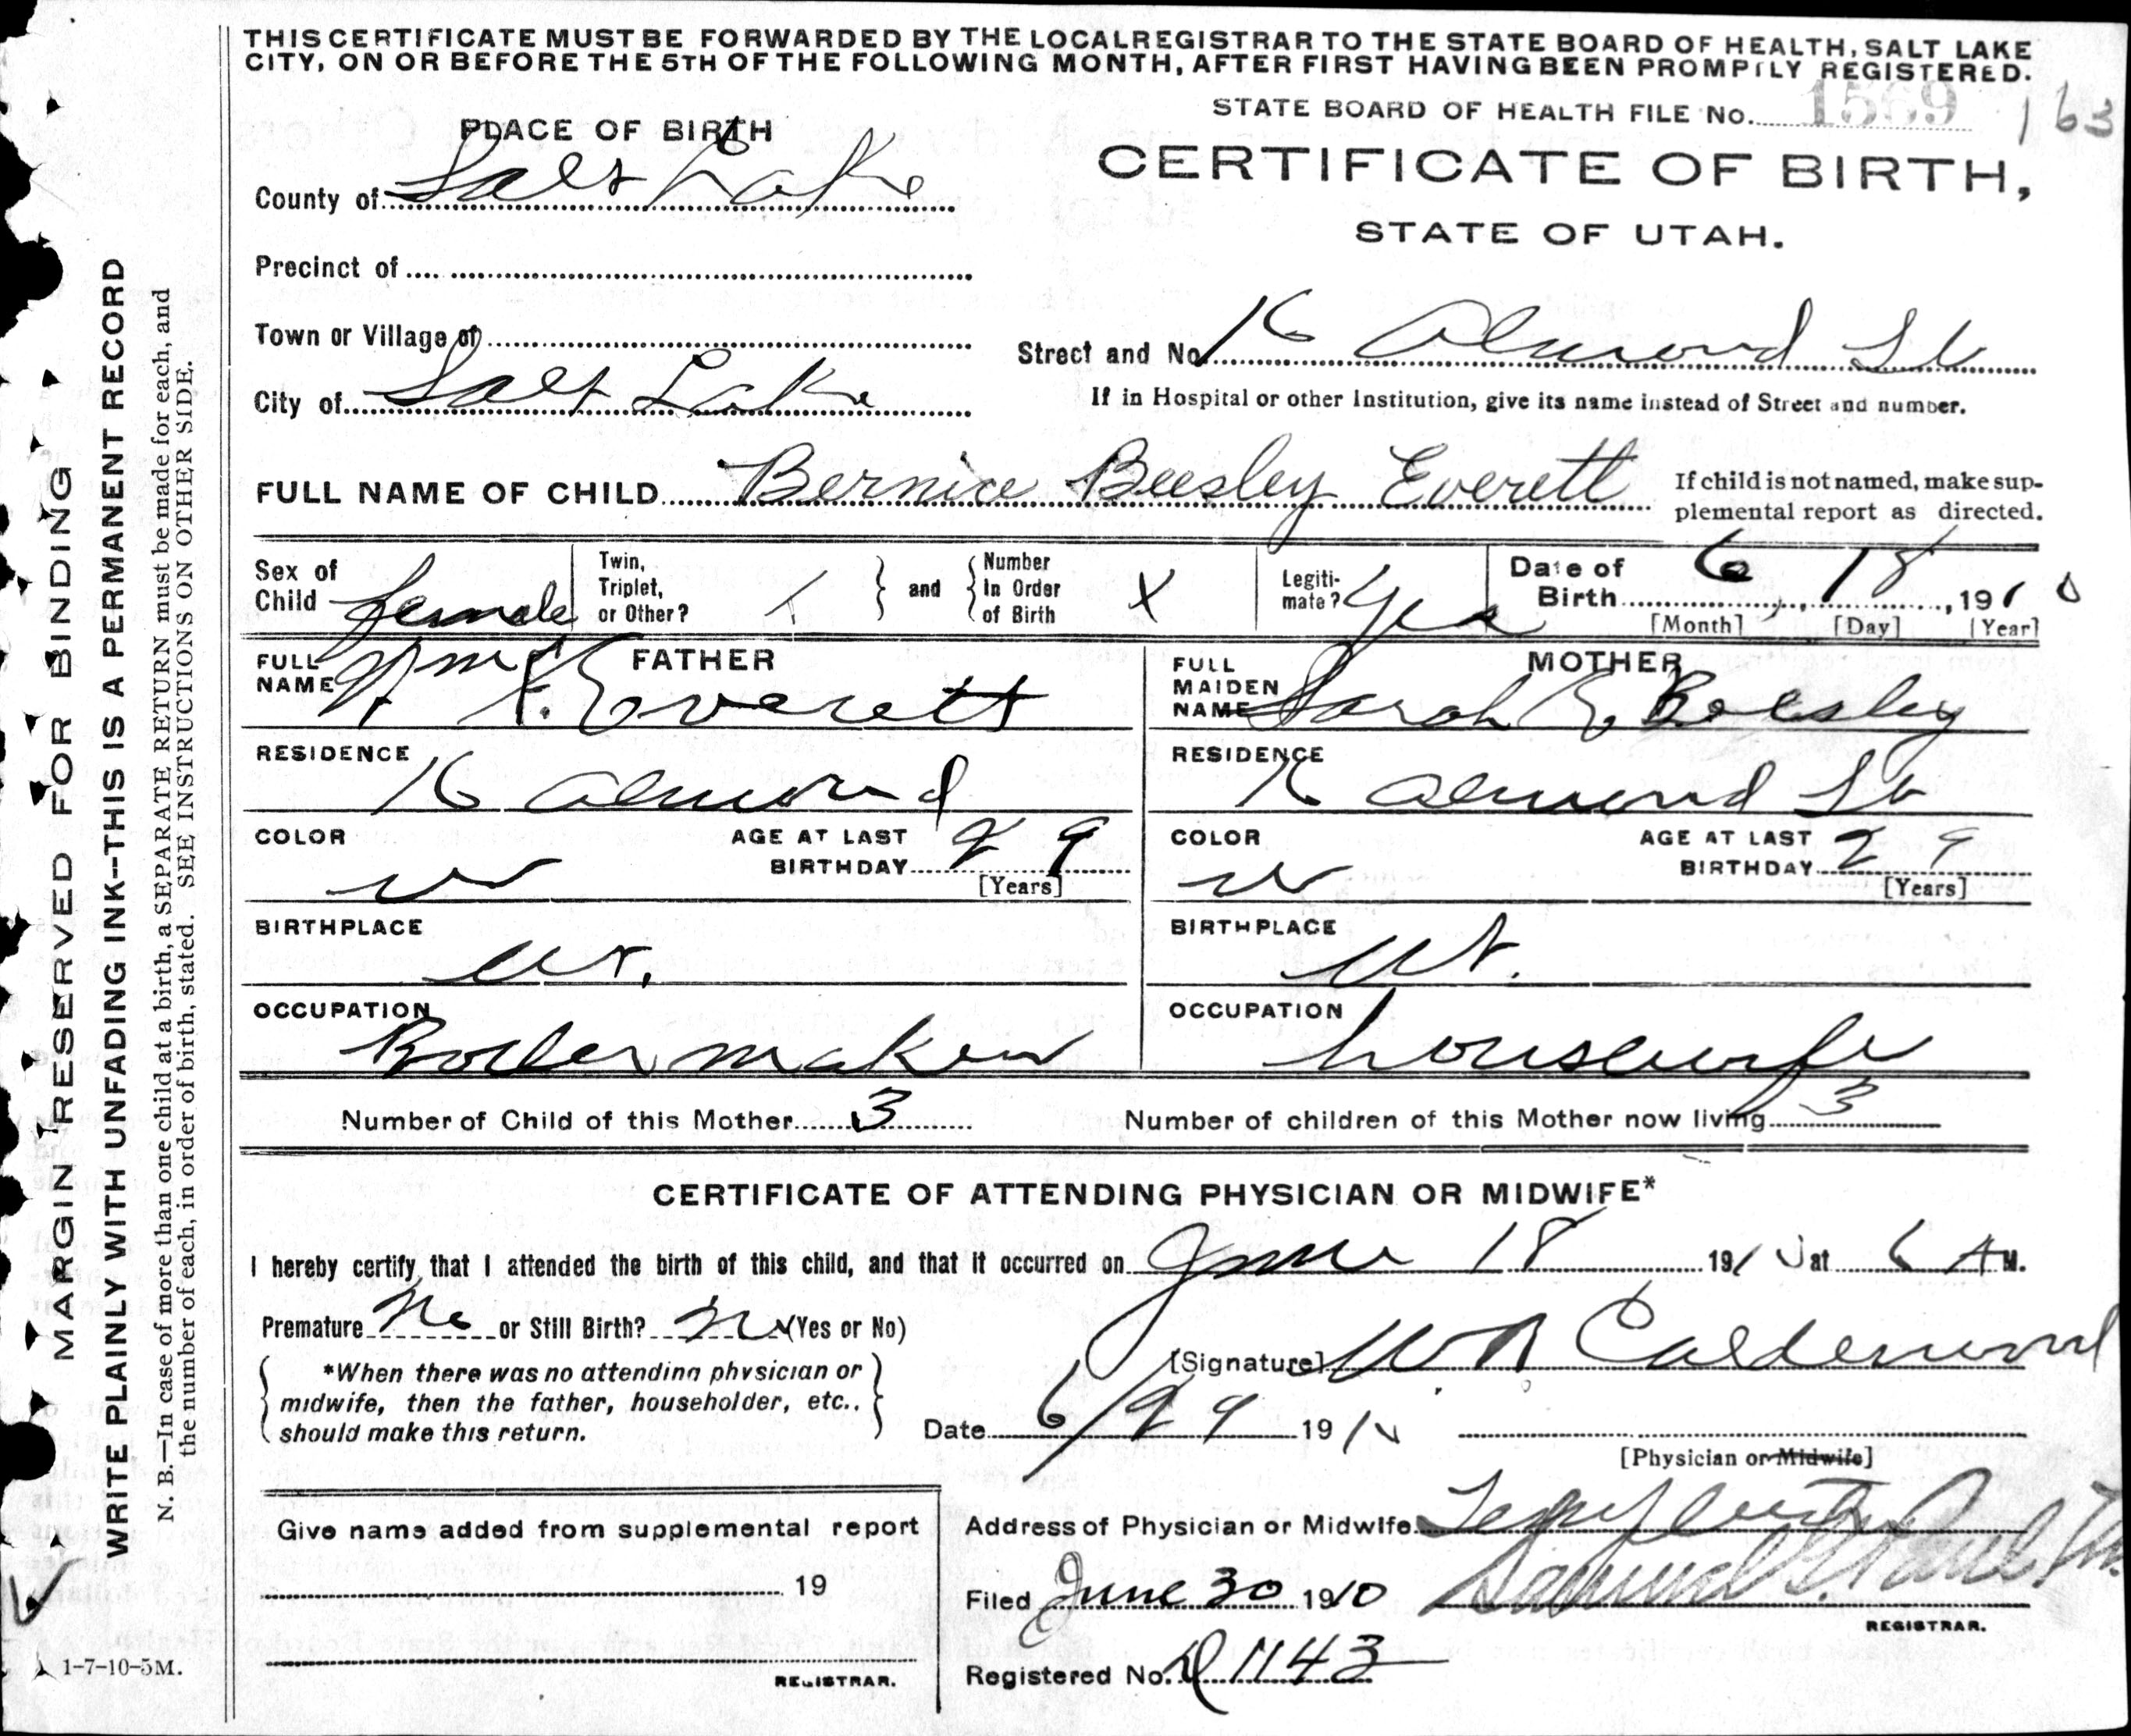 THIS CERTIFICATE MUST BE FORWARDED BY THE LOCAL REGISTRAR TO THE STATE BOARD OF HEALTH, SALT LAKE
CITY, ON OR BEFORE THE 5TH OF THE FOLLOWING MONTH, AFTER FIRST HAVING BEEN PROMPTLY REGISTERED.
STATE BOARD OF HEALTH FILE No. 1569 163
PLACE OF BIRTH
CERTIFICATE OF BIRTH,
STATE OF UTAH.
County of Salt Lake
Precinct of
Town or Village of
Street and No. 16 Almond St
City of Salt Lake
If in Hospital or other Institution, give its name instead of Street and number.
FULL NAME OF CHILD Bernice Beesley Everett
If child is not named, make sup-
plemental report as directed.
Sex of Child female
Twin, Triplet, or Other? and Number In Order of Birth
Legiti-mate? Yes
Date of Birth 6, 18, 1910
[Month] [Day] [Year]
FATHER
FULL NAME Wm F. Everett
MOTHER
FULL MAIDEN NAME Sarah E. Beesley
RESIDENCE 16 Almond
RESIDENCE 16 Almond St
COLOR w AGE AT LAST BIRTHDAY 29 [Years]
COLOR w AGE AT LAST BIRTHDAY 29 [Years]
BIRTHPLACE Ut.
BIRTHPLACE Ut.
OCCUPATION Boiler maker
OCCUPATION housewife
Number of Child of this Mother 3
Number of children of this Mother now living 3
CERTIFICATE OF ATTENDING PHYSICIAN OR MIDWIFE*
I hereby certify that I attended the birth of this child, and that it occurred on June 18 1910 at 6 A M.
Premature No or Still Birth? No (Yes or No)
[Signature] Calderwood
*When there was no attending physician or
midwife, then the father, householder, etc.,
should make this return.
Date 6/29 1910
[Physician or Midwife]
Give name added from supplemental report
19
REGISTRAR.
Address of Physician or Midwife
Filed June 30 1910 Samuel G. Paul
REGISTRAR.
Registered No. D 1143
MARGIN RESERVED FOR BINDING
WRITE PLAINLY WITH UNFADING INK--THIS IS A PERMANENT RECORD
N. B.—In case of more than one child at a birth, a SEPARATE RETURN must be made for each, and
the number of each, in order of birth, stated. SEE INSTRUCTIONS ON OTHER SIDE.
1-7-10-5M.